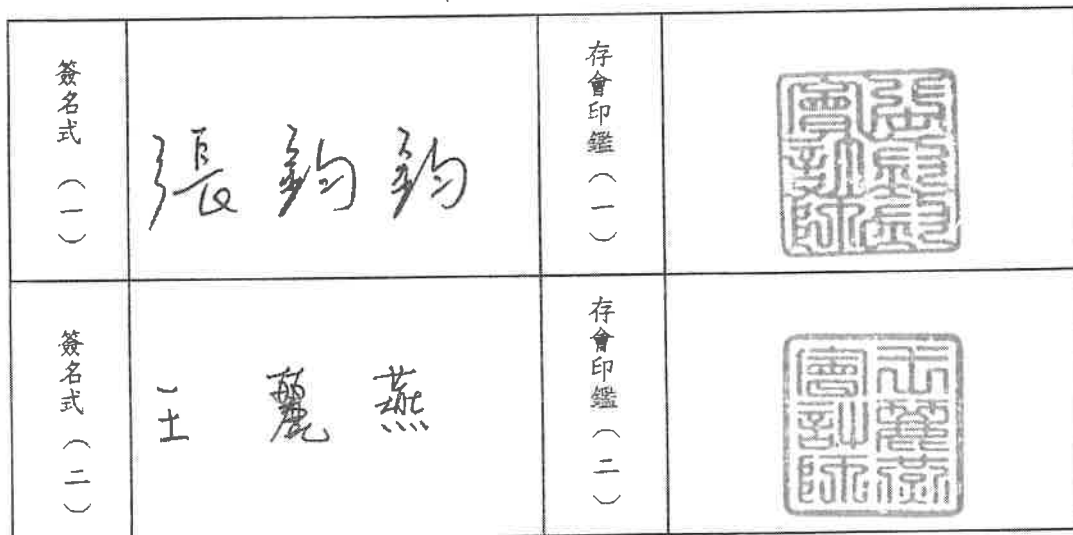 簽名式（一）
張鈞鈞
存會印鑑（一）
張鈞鈞
會計師
簽名式（二）
王麗燕
存會印鑑（二）
王麗燕
會計師